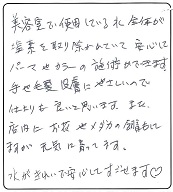 美容室で使用している水全体が
塩素を取り除かれていて安心に
パーマやカラーの施術ができます
手や毛髪、皮膚にやさしいので
仕上りも良いと思います。また、
店内にお花やメダカの飼育もして
ますが元気に育ってます。
水がきれいで安心してすごせます♡